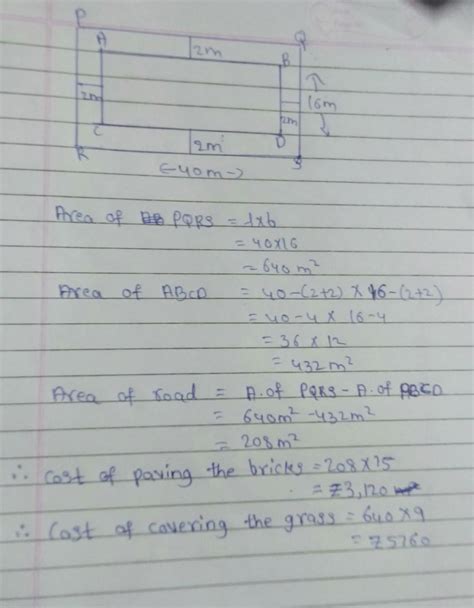 P
Q
A
2m
B
2m
16m
2m
C
D
R
2m
S
<-40m->
Area of PQRS = l×b
= 40×16
= 640 m²
Area of ABCD = 40-(2+2) × 16-(2+2)
= 40-4 × 16-4
= 36 × 12
= 432 m²
Area of road = A. of PQRS - A. of ABCD
= 640m² - 432m²
= 208 m²
∴ Cost of paving the bricks = 208×15
= ₹3,120
∴ Cost of covering the grass = 640×9
= ₹5760